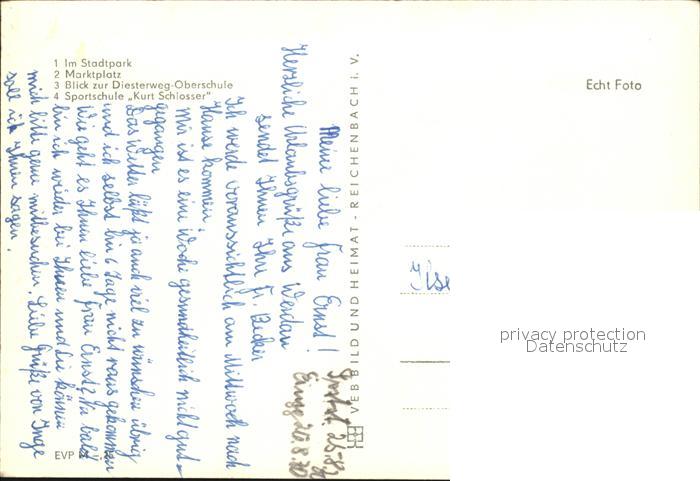 1 Im Stadtpark
2 Marktplatz
3 Blick zur Diesterweg-Oberschule
4 Sportschule „Kurt Schlosser"
Echt Foto
Meine liebe Frau Ernst!
Herzliche Urlaubsgrüße aus Werdau
sendet Ihnen Ihr F. Becker
Ich werde voraussichtlich am Mittwoch nach
Hause kommen!
Mir ist es eine Woche gesundheitlich nicht gut
gegangen
Das Wetter läßt ja auch viel zu wünschen übrig
und ich selbst bin 6 Tage nicht raus gekommen
Wie geht es Ihnen liebe Frau Ernst? Na bald
bin ich wieder bei Ihnen und Sie können
mich bitte gerne mitbesuchen. Liebe Grüße von Inge
soll ich Ihnen sagen.
VEB BILD UND HEIMAT - REICHENBACH i. V.
Eing. 20.8.70
Ilse
EVP
privacy protection
Datenschutz